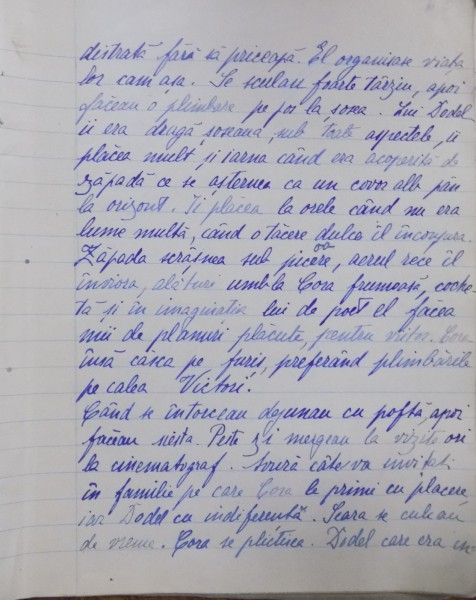 distrată fără să priceapă. El organisase viața
lor cam așa. Se sculau foarte târziu, apoi
făceau o plimbare pe jos la șosea. Lui Dodel
îi era dragă șoseaua, sub toate aspectele, îi
plăcea mult și iarna când era acoperită de
zăpadă ce se așternea ca un covor alb pân
la orizont. Îi plăcea la orele când nu era
lume multă, când o tăcere dulce îl înconjura
Zăpada scrâșnea sub picioare, aerul rece îl
înviora, alături umbla Cora frumoasă, coche-
tă și în imaginația lui de poet el făcea
mii de planuri plăcute, pentru viitor. Cora
însă căsca pe furiș, preferând plimbările
pe calea Victori!
Când se întorceau dejunau cu poftă, apoi
făceau siesta. Peste zi mergeau la vizite ori
la cinematograf. câte-va invitați
în familie pe care Cora le primi cu placere
iar Dodel cu indiferență. Seara se culcau
de vreme. Cora se plictisea. Dodel care era în-